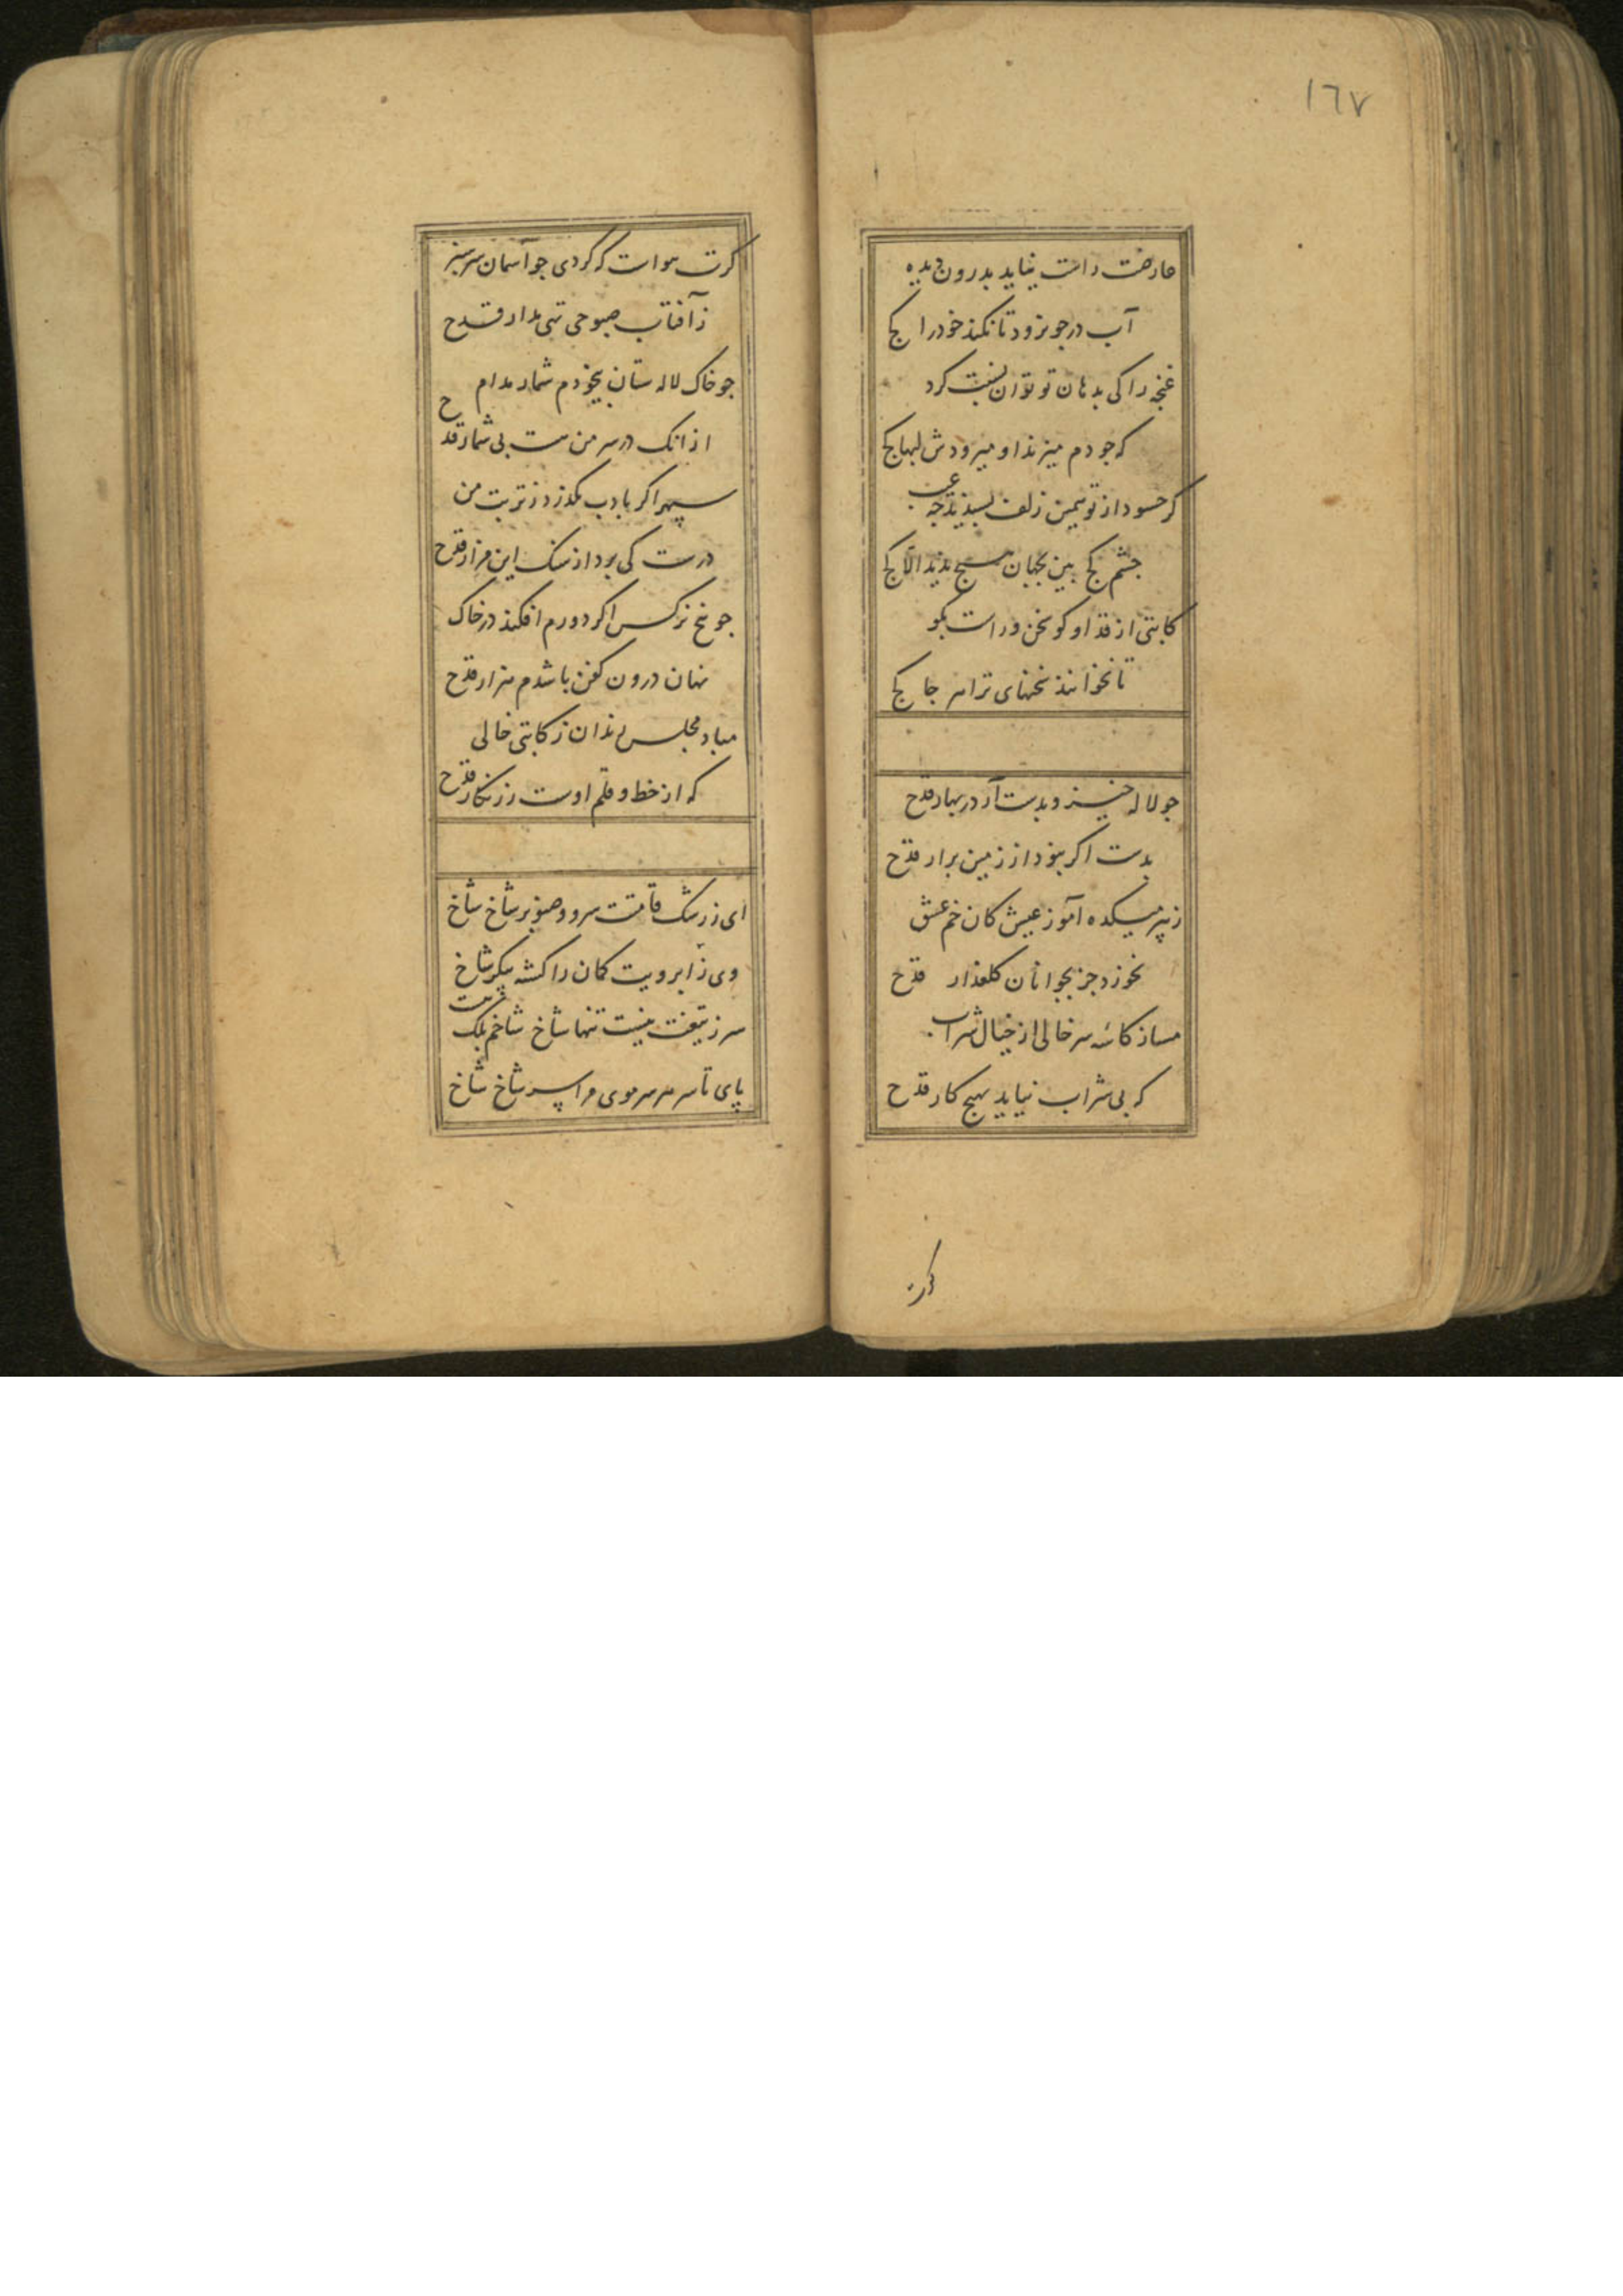 ١٦٧
عارضت راست نیاید بدرون دیده
آب در جو نرود تا نکند خود را کج
غنچه را کی بدهان تو توان نسبت کرد
که جو دم میزند او میرودش لبها کج
کر حسود از تو همین زلف بسندد جه عجب
جشم کج بین بجهان هیچ ندید الا کج
کاتبی از قد او کو سخن و راست بکو
تا نخوانند سخنهای ترا هر جا کج
جو لاله خیز و بدست آر در بهار قدح
بدست اکر نبود از زمین برار قدح
ز پیر میکده آموز عیش کان خم عشق
نخورد جز بجوانان کلعذار قدح
مساز کاسه سر خالی از خیال شراب
که بی شراب نیاید بهیچ کار قدح
کرت
کرت هواست که کردی جو آسمان سرسبز
ز آفتاب صبوحی تهی مدار قدح
جو خاک لاله ستان بیخودم شمار مدام
از انک در سر من هست بی شمار قدح
سپهر اکر بادب نکذرد ز تربت من
درست کی برد از سنک این مزار قدح
جو بیخ نرکس اکر دورم افکند در خاک
نهان درون کفن باشدم هزار قدح
مباد مجلس رندان ز کاتبی خالی
که از خط و قلم اوست زرنکار قدح
ای ز رشک قامتت سرو و صنوبر شاخ شاخ
وی ز ابرویت کمان را کشته پیکر شاخ شاخ
سر ز تیغت نیست تنها شاخ شاخم بلک هست
پای تا سر هر سر موی مرا سر شاخ شاخ